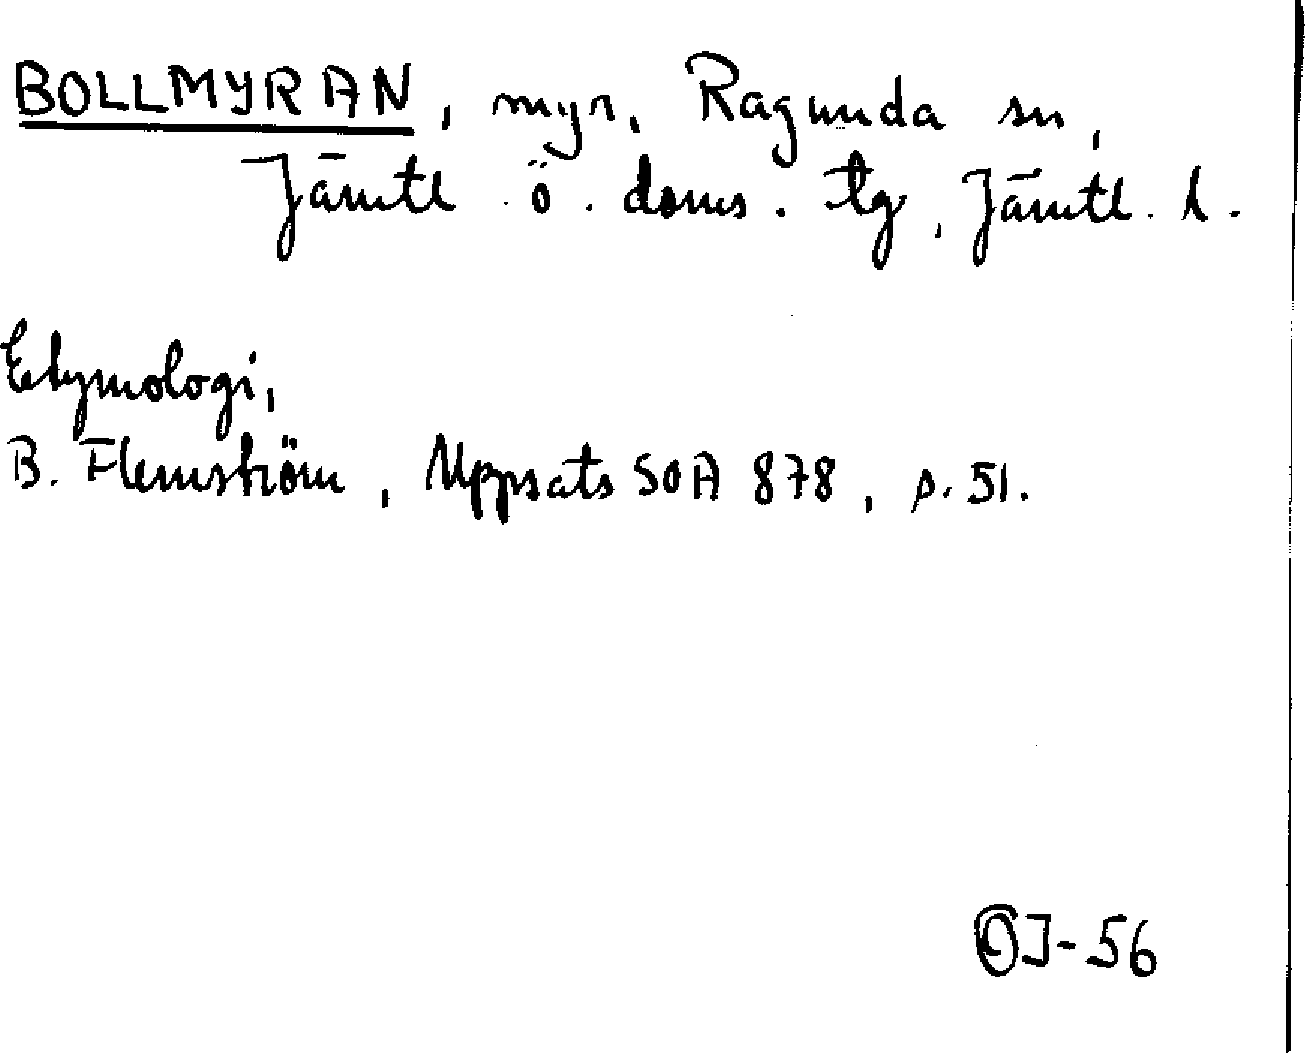 BOLLMYRAN, myr, Ragunda sn,
Jämtl ö. doms. tg, Jämtl. l.
Etymologi,
B. Flemström, Uppsats SOA 878, s. 51.
OJ-56